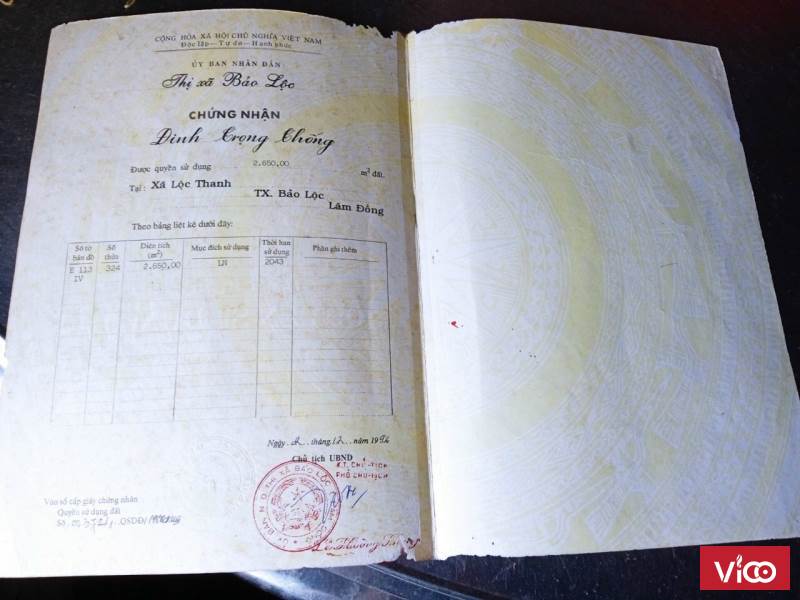 CỘNG HÒA XÃ HỘI CHỦ NGHĨA VIỆT NAM
Độc lập — Tự do — Hạnh phúc
ỦY BAN NHÂN DÂN
Thị xã Bảo Lộc
CHỨNG NHẬN
Đinh Trọng Chống
Được quyền sử dụng 2.650,00 m² đất.
Tại: Xã Lộc Thanh TX. Bảo Lộc Lâm Đồng
Theo bảng liệt kê dưới đây:
Số tờ bản đồ Số thửa Diện tích (m²) Mục đích sử dụng Thời hạn sử dụng Phần ghi thêm
E 113 IV 324 2.650,00 LN 2043
Ngày tháng 12 năm 1996
Chủ tịch UBND
K.T. CHỦ TỊCH
PHÓ CHỦ TỊCH
THỊ XÃ BẢO LỘC
Vào sổ cấp giấy chứng nhận
Quyền sử dụng đất
Số QSDĐ
VICO